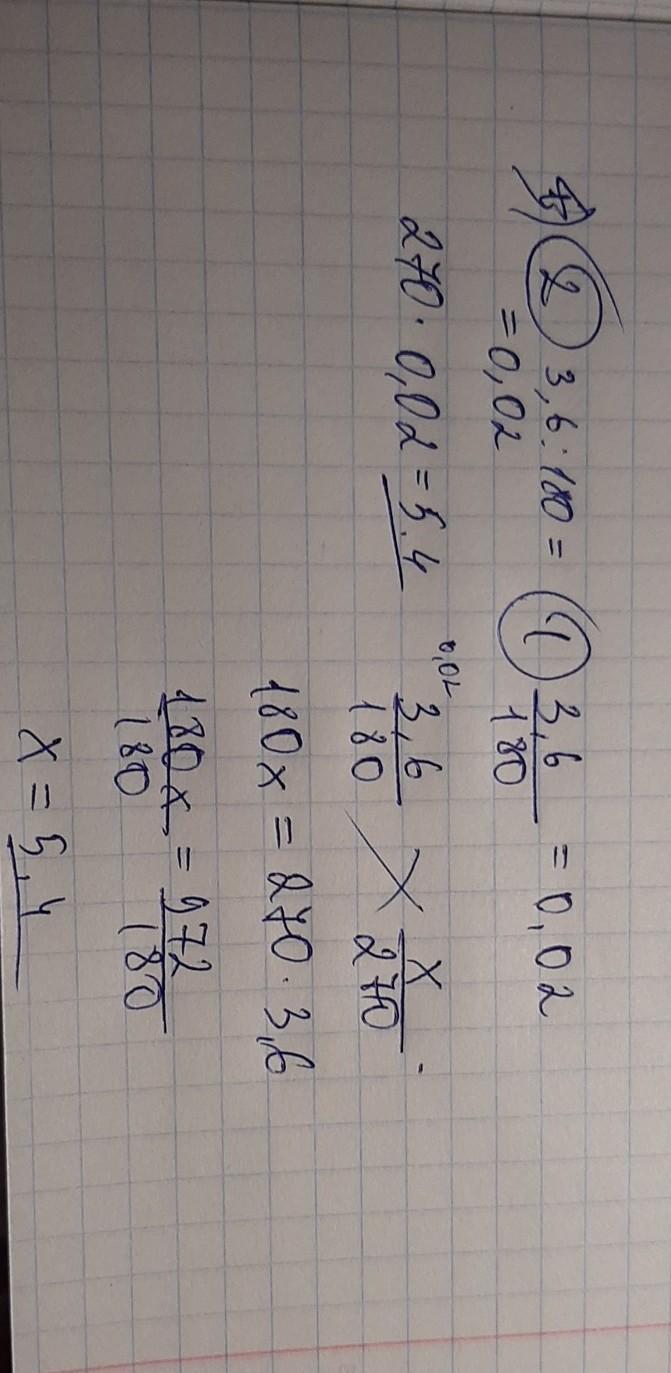 ② 3,6 : 180 =
= 0,02
270 · 0,02 = 5,4
① 3,6/180 = 0,02
0,02
3,6/180 x/270 .
180x = 270 · 3,6
180x/180 = 972/180
x = 5,4